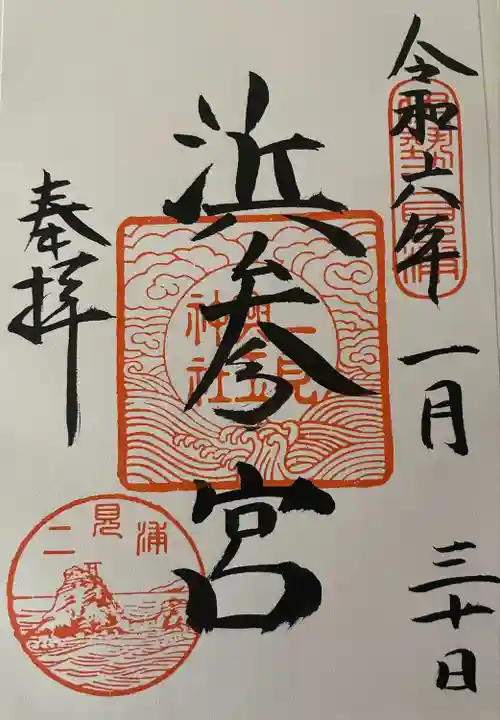 令和六年 一月 三十日
伊勢二見浦
浜参宮
二見
興玉
神社
奉拝
二見浦